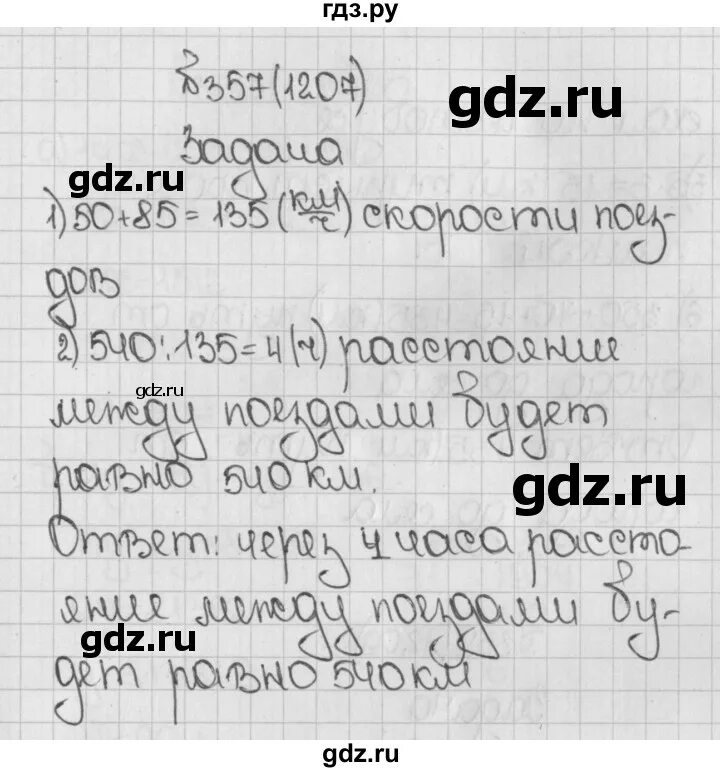 гдз.ру
№357(1207)
gdz.ru
Задача
gdz.ru
1) 50+85=135 (км/ч) скорости поез-
дов
2) 540:135=4(ч) расстояние
gdz.ru
между поездами будет
равно 540 км.
gdz.ru
Ответ: через 4 часа рассто-
яние между поездами бу-
gdz.ru
дет равно 540 км
gdz.ru